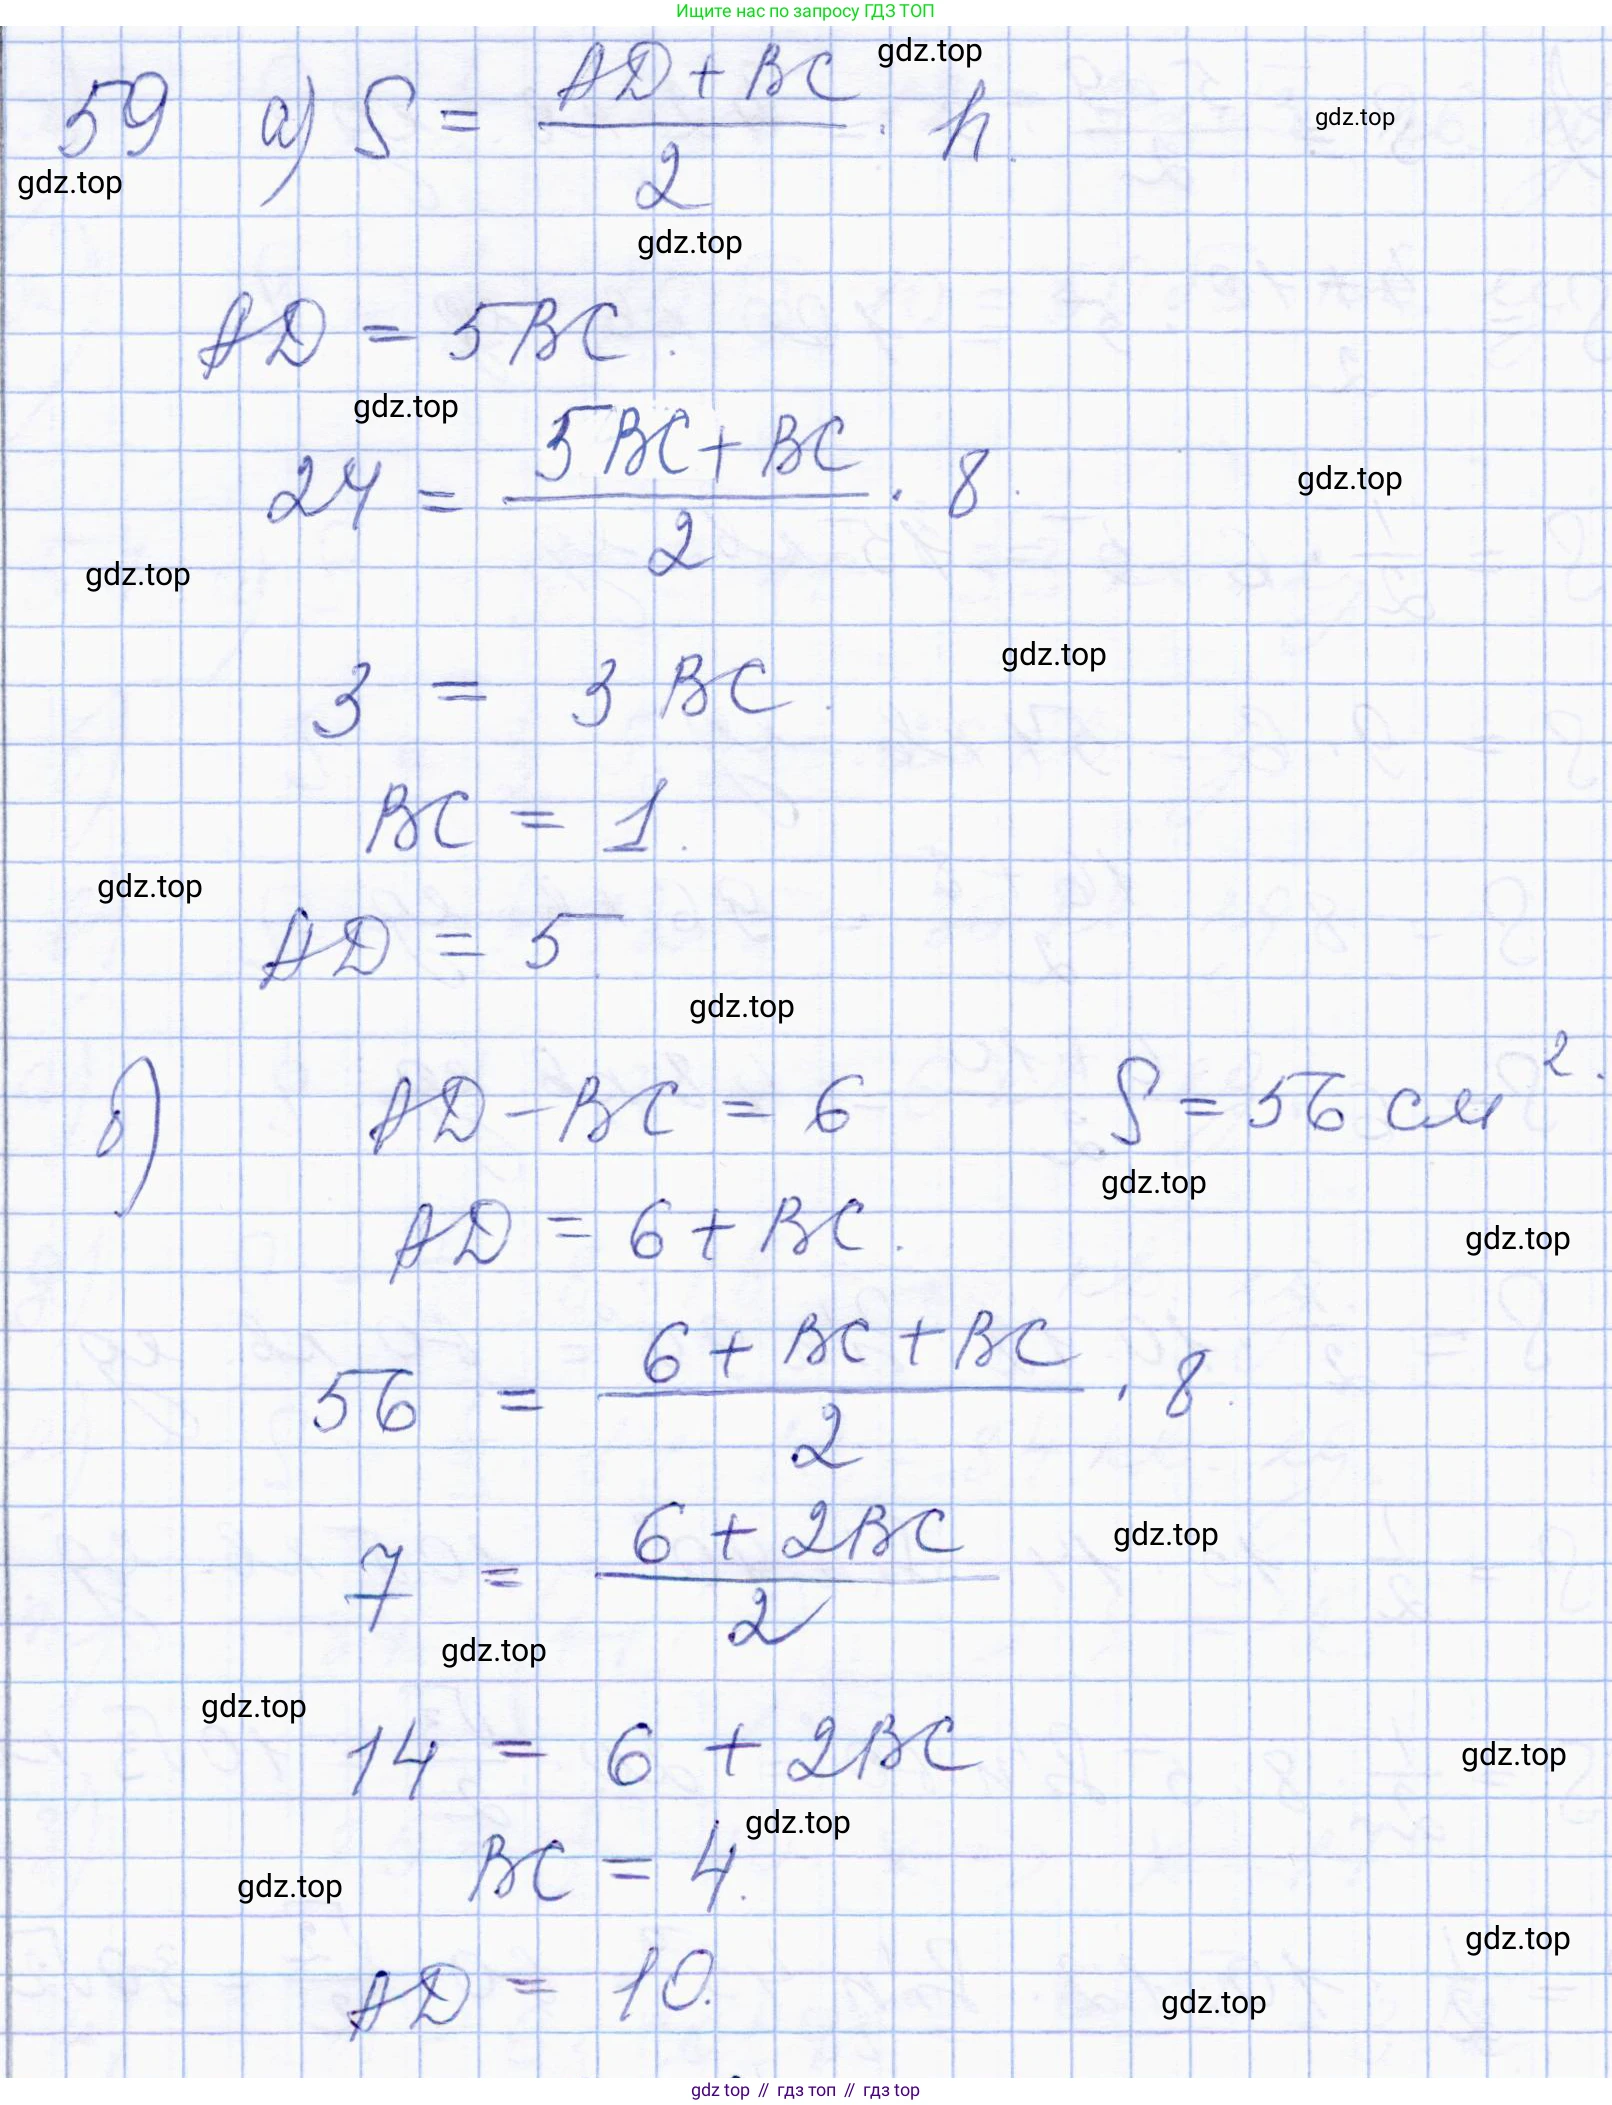 Ищите нас по запросу ГДЗ ТОП
gdz.top
59 а) S = (AD + BC)/2 · h.
gdz.top
gdz.top
gdz.top
AD = 5BC.
gdz.top
24 = (5BC + BC)/2 · 8.
gdz.top
gdz.top
3 = 3 BC.
gdz.top
BC = 1.
gdz.top
AD = 5.
gdz.top
б) AD - BC = 6 S = 56 см².
gdz.top
AD = 6 + BC.
gdz.top
56 = (6 + BC + BC)/2 · 8.
7 = (6 + 2BC)/2
gdz.top
gdz.top
gdz.top
14 = 6 + 2BC
gdz.top
gdz.top
BC = 4.
gdz.top
gdz.top
AD = 10.
gdz.top
gdz top // гдз топ // гдз top